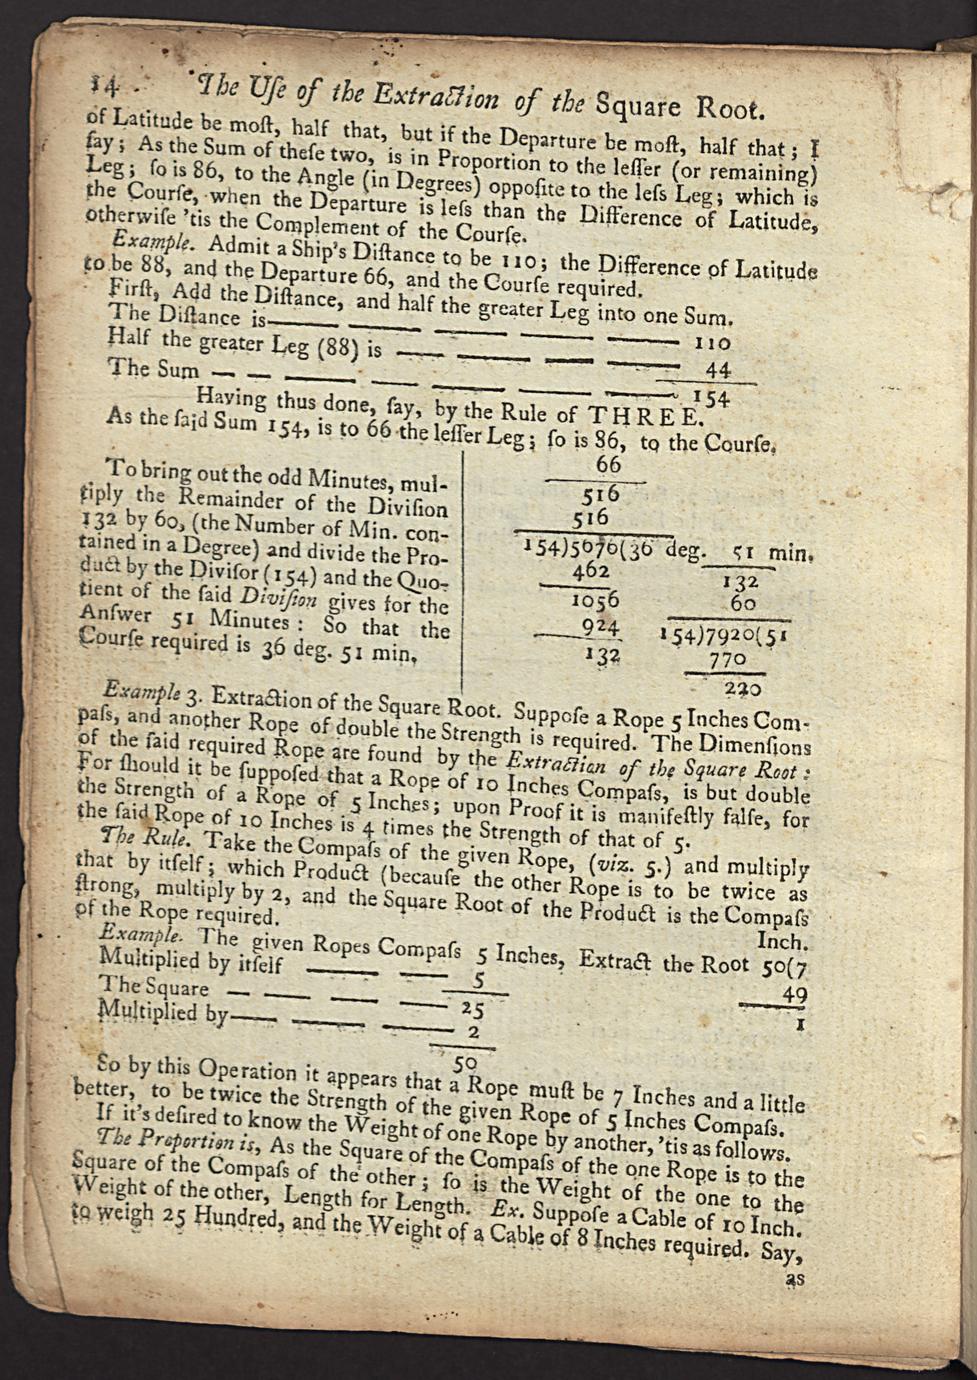 14 The Uſe of the Extraction of the Square Root.
of Latitude be moſt, half that, but if the Departure be moſt, half that; I
ſay; As the Sum of theſe two, is in Proportion to the leſſer (or remaining)
Leg; ſo is 86, to the Angle (in Degrees) oppoſite to the leſs Leg; which is
the Courſe, when the Departure is leſs than the Difference of Latitude,
otherwiſe 'tis the Complement of the Courſe.
Example. Admit a Ship's Diſtance to be 110; the Difference of Latitude
to be 88, and the Departure 66, and the Courſe required.
Firſt, Add the Diſtance, and half the greater Leg into one Sum.
The Diſtance is — — — — — 110
Half the greater Leg (88) is — — — — 44
The Sum — — — — — — — 154
Having thus done, ſay, by the Rule of THREE.
As the ſaid Sum 154, is to 66 the leſſer Leg; ſo is 86, to the Courſe.
To bring out the odd Minutes, mul-
tiply the Remainder of the Diviſion
132 by 60, (the Number of Min. con-
tained in a Degree) and divide the Pro-
duct by the Diviſor (154) and the Quo-
tient of the ſaid Diviſion gives for the
Anſwer 51 Minutes: So that the
Courſe required is 36 deg. 51 min.
66
516
516
154)5676(36 deg. 51 min.
462 132
1056 60
924 154)7920(51
132 770
220
Example 3. Extraction of the Square Root. Suppoſe a Rope 5 Inches Com-
paſs, and another Rope of double the Strength is required. The Dimenſions
of the ſaid required Rope are found by the Extraction of the Square Root:
For ſhould it be ſuppoſed that a Rope of 10 Inches Compaſs, is but double
the Strength of a Rope of 5 Inches; upon Proof it is manifeſtly falſe, for
the ſaid Rope of 10 Inches is 4 times the Strength of that of 5.
The Rule. Take the Compaſs of the given Rope, (viz. 5.) and multiply
that by itſelf; which Product (becauſe the other Rope is to be twice as
ſtrong, multiply by 2, and the Square Root of the Product is the Compaſs
of the Rope required.
Inch.
Example. The given Ropes Compaſs 5 Inches, Extract the Root 50(7
Multiplied by itſelf — — 5
49
The Square — — — — 25
1
Multiplied by — — — 2
50
So by this Operation it appears that a Rope muſt be 7 Inches and a little
better, to be twice the Strength of the given Rope of 5 Inches Compaſs.
If it's deſired to know the Weight of one Rope by another, 'tis as follows.
The Proportion is, As the Square of the Compaſs of the one Rope is to the
Square of the Compaſs of the other; ſo is the Weight of the one to the
Weight of the other, Length for Length. Ex. Suppoſe a Cable of 10 Inch.
to weigh 25 Hundred, and the Weight of a Cable of 8 Inches required. Say,
as